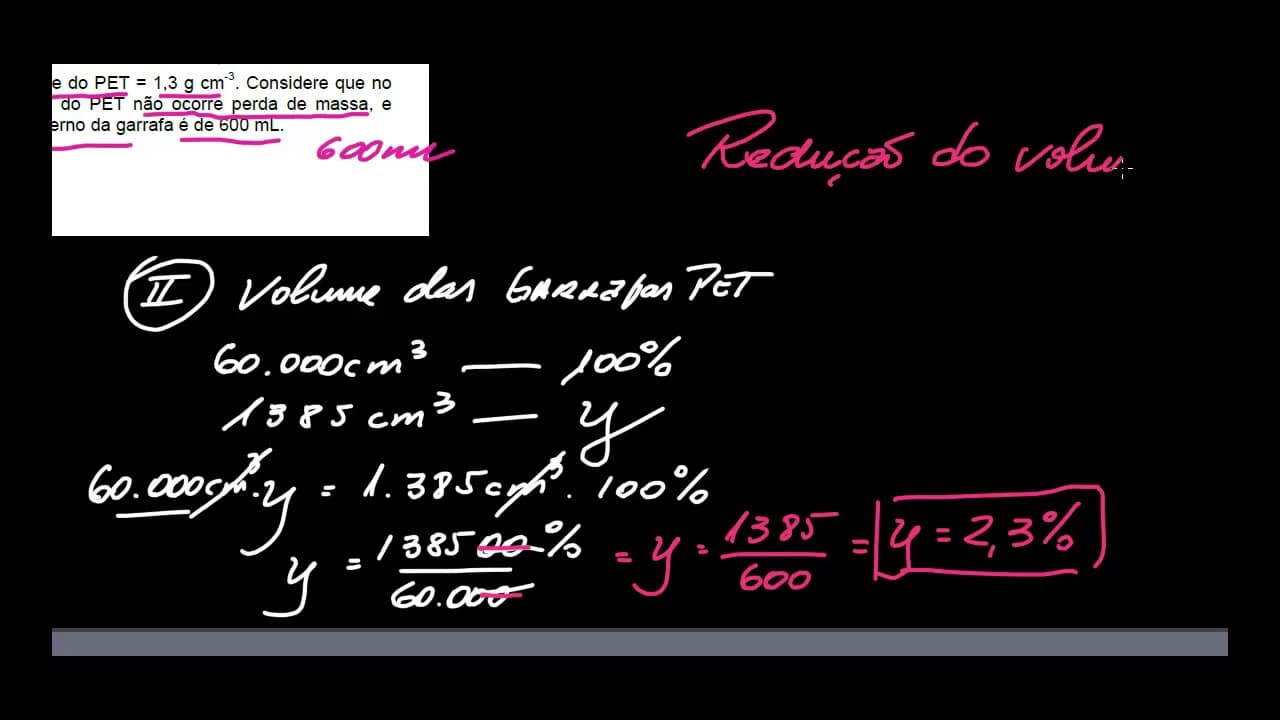 e do PET = 1,3 g cm-3. Considere que no
do PET não ocorre perda de massa, e
erno da garrafa é de 600 mL.
600ml
Redução do volu
II Volume das GARRAfas PET
60.000cm³ — 100%
1385cm³ — y
60.000cm³.y = 1.385cm³. 100%
y = 138500% / 60.000 = y = 1385 / 600 = y = 2,3%